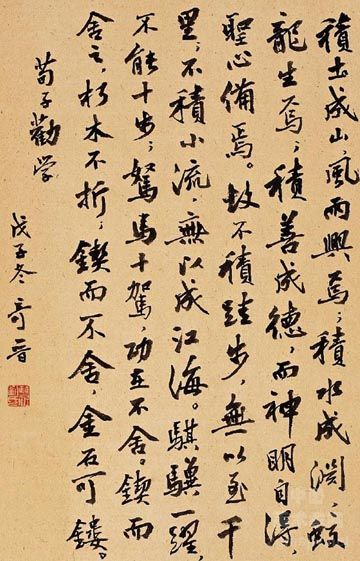 積土成山，風雨興焉；積水成淵，蛟
龍生焉；積善成德，而神明自得，
聖心備焉。故不積跬步，無以至千
里；不積小流，無以成江海。騏驥一躍，
不能十步；駑馬十駕，功在不舍。鍥而
舍之，朽木不折；鍥而不舍，金石可鏤。
荀子勸学
戊子冬奇晋